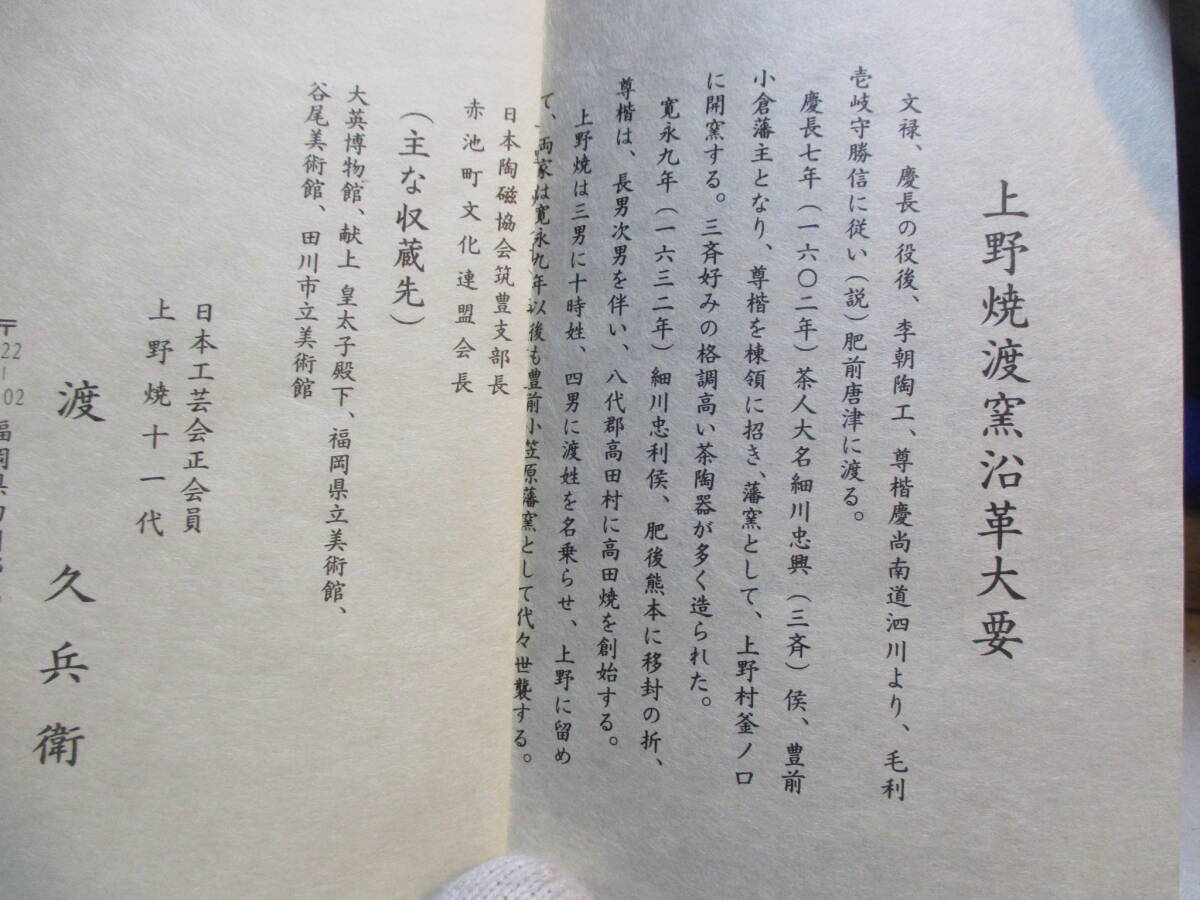 上野焼渡窯沿革大要
文禄、慶長の役後、李朝陶工、尊楷慶尚南道泗川より、毛利
壱岐守勝信に従い（説）肥前唐津に渡る。
慶長七年（一六〇二年）茶人大名細川忠興（三斉）侯、豊前
小倉藩主となり、尊楷を棟領に招き、藩窯として、上野村釜ノ口
に開窯する。三斉好みの格調高い茶陶器が多く造られた。
寛永九年（一六三二年）細川忠利侯、肥後熊本に移封の折、
尊楷は、長男次男を伴い、八代郡高田村に高田焼を創始する。
上野焼は三男に十時姓、四男に渡姓を名乗らせ、上野に留め
て、両家は寛永九年以後も豊前小笠原藩窯として代々世襲する。
日本陶磁協会筑豊支部長
赤池町文化連盟会長
（主な収蔵先）
大英博物館、献上 皇太子殿下、福岡県立美術館、
谷尾美術館、田川市立美術館
日本工芸会正会員
上野焼十一代
渡 久兵衛
〒
22-02 福岡県